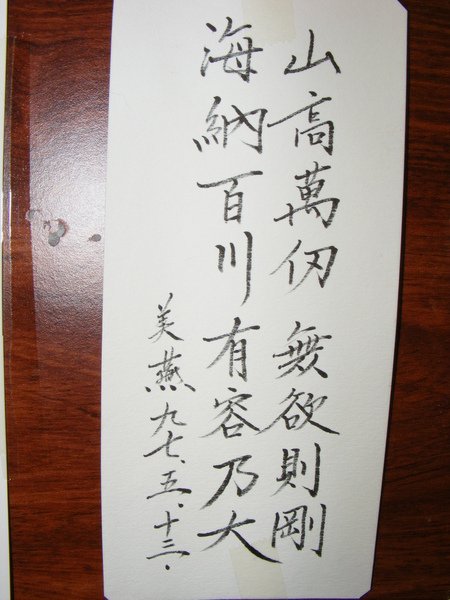 山高萬仞 無欲則剛
海納百川有容乃大
美燕九七、五、十三.